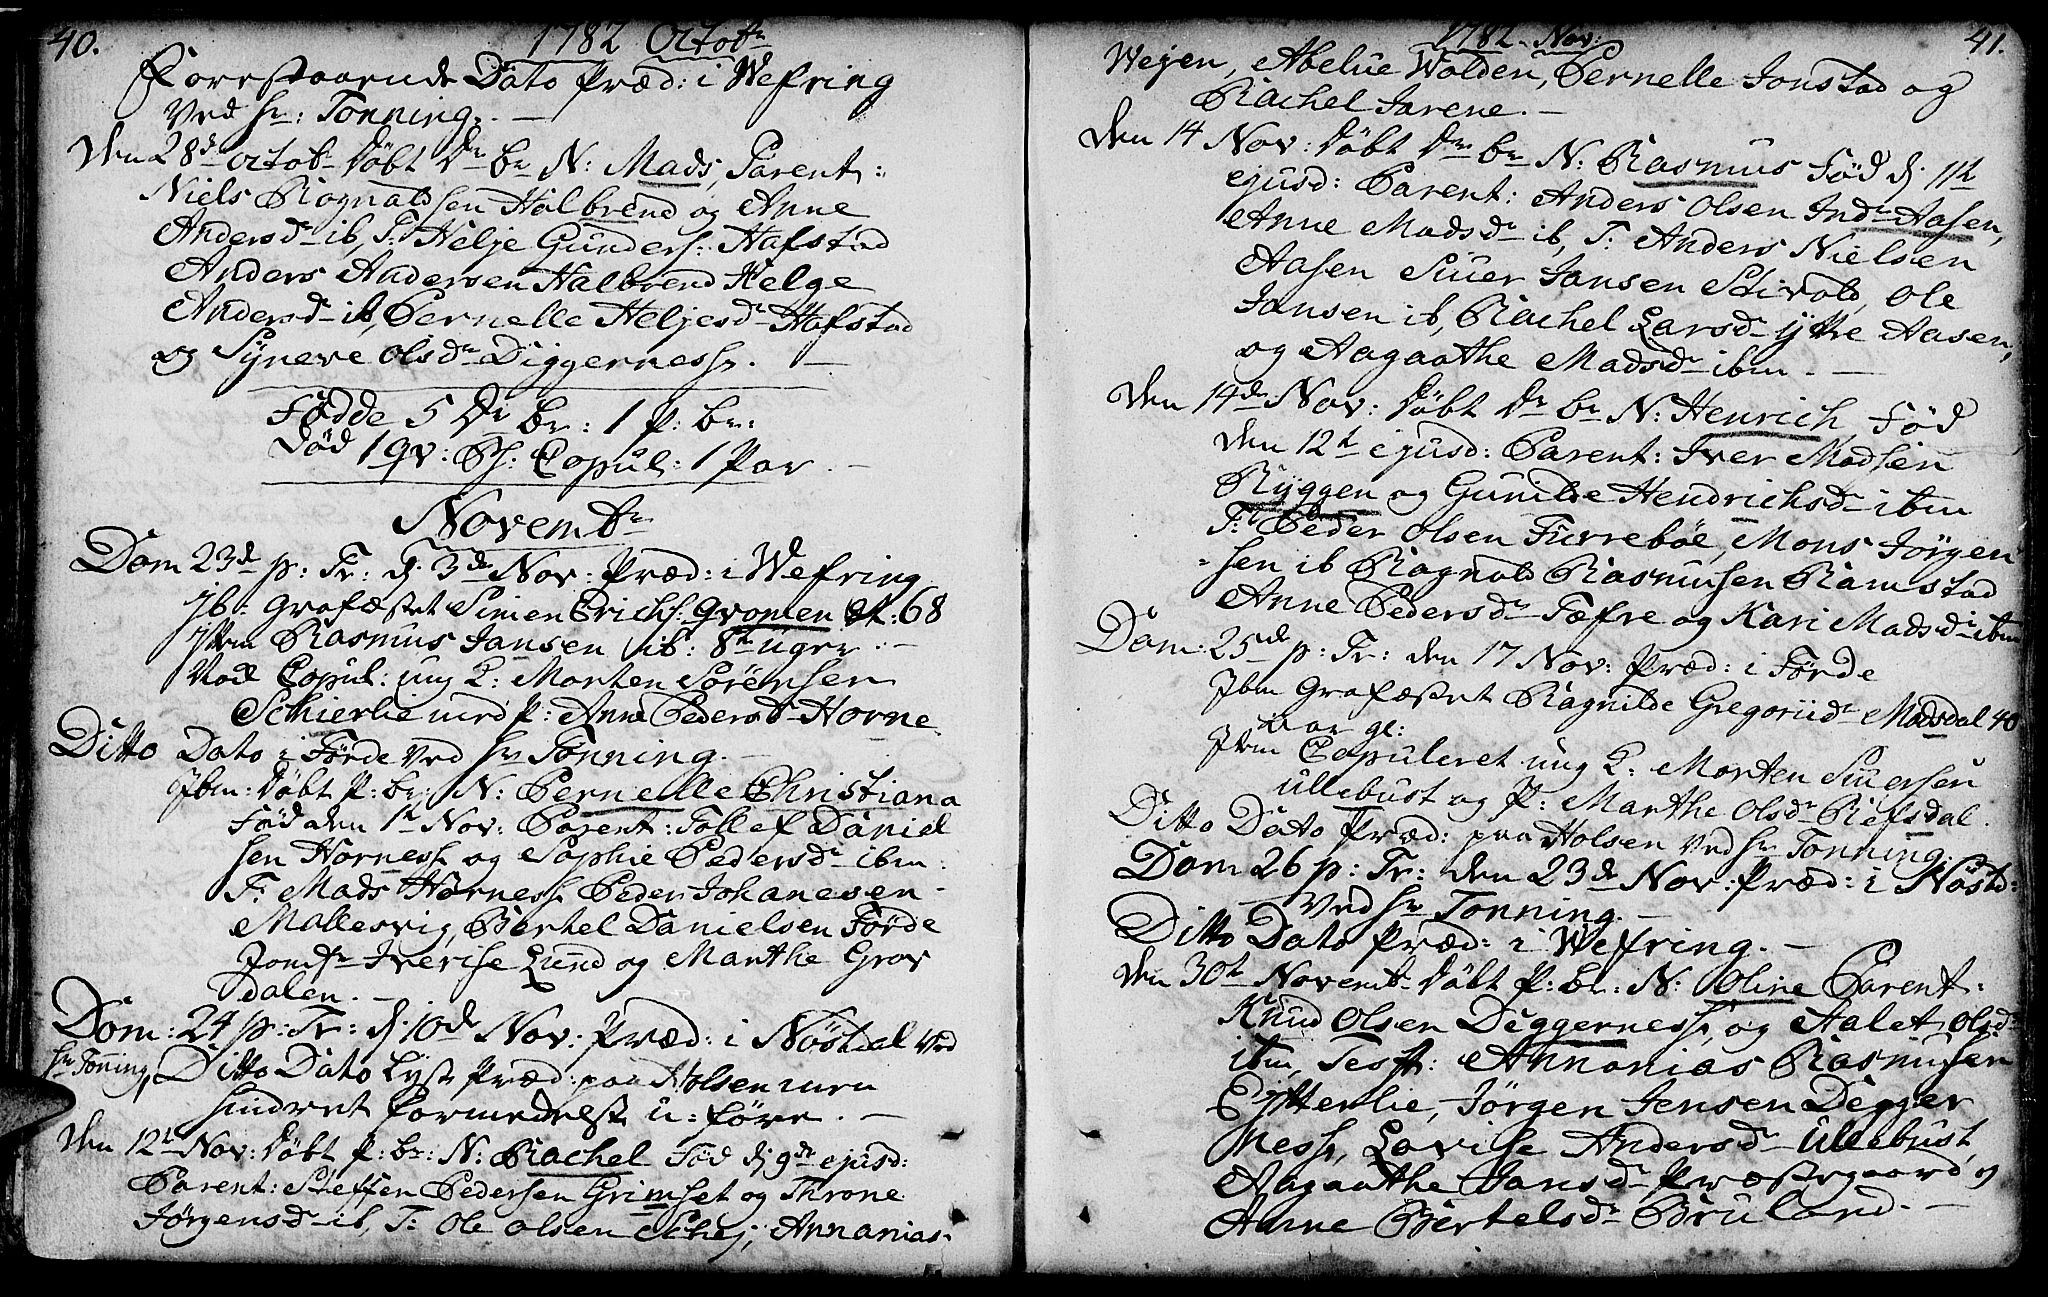 40.
1782 Octobr
Forestaaende Dato Præd: i Wefring
Ved Hr: Tonning. —
Den 28de Octobr Døbt Dr: br N: Mads, Parent:
Niels Ragnaldsen Halbrend og Anne
Andersdr ib, T: Helje Gunders: Hafstad
Anders Andersen Halbrend Helge
Andersdr ib, Pernelle Heljesdr Hafstad
og Synneve Olsdr Diggernessz. —
Fødde 5 Dr br: 1 p: br:
Død 1 qv: Ps: Copul: 1 Par. —
Novembr
Dom 23de p: Tr: d: 3de Nov: Præd: i Wefring
ib: Grafæstet Simen Erichs: Qvamen Æt: 68
item Rasmus Jansen ib: 8te uger. —
Vod Copul: ung K: Morten Sørensen
Schierlie med P: Anne Pedersdr Horne
Ditto Dato i Førde Ved Hr Tonning. —
Ibm: Døbt P: br: N: Pernelle Christiana
Fød den 1te Nov: Parent: Tollef Daniel
sen Hornessz og Sophie Pedersdr ibm.
T: Mads Hornessz Peder Johanesen
Mallesvig, Bertel Danielsen Førde
Jomfr Iverise Lund og Marthe Grov
dalen. —
Dom: 24 p: Tr: d: 10de Nov: Præd: i Nøstdal Ved
Hr Tonning, Ditto Dato Lyst Præd: paa Holsen men
hindret formedelst u=føre. —
Den 12te Nov: Døbt P: br: N: Rachel Fød d: 9de ejusd:
Parent: Steffen Pedersen Grimset og Throne
Jørgensdr ib, T: Ole Olsen Schej, Annanias
1782 Nov:
41.
Wejen, Abelue Wolden, Pernelle Jonstad og
Rachel Jarene. —
Den 14 Nov: Døbt Dr br N: Rasmus Fød d: 11te
ejusd: Parent: Anders Olsen Indr Aasen,
Anne Madsdr ib, T: Anders Nielsen
Aasen Siuer Jansen Stivold, Ole
Jansen ib, Rachel Larsdr ytre Aasen,
og Aagaathe Madsdr ibm. —
Den 14de Nov: Døbt Dr br N: Henrich Fød
den 12te ejusd: Parent: Iver Madsen
Ryggen og Gunilde Hendrichsdr ibm
T: Peder Olsen Furrebøe, Mons Jørgen
=sen ib Ragnald Rasmusen Ramstad
Anne Pedersdr Tefre og Kari Madsdr ibm
Dom: 25de p: Tr: den 17 Nov: Præd: i Førde
Ibm Grafæstet Ragnilde Gregoriidr Madsdal 40
aar gl:
Item Copuleret ung K: Morten Siuersen
Ullebust og P: Marthe Olsdr Refsdal.
Ditto Dato Præd: paa Holsen Ved Hr Tonning.
Dom 26 p: Tr: den 23de Nov: Præd: i Nøstd:
Ved Hr Tonning. —
Ditto Dato Præd: i Wefring. —
Den 30te Novembr Døbt P: br: N: Oline Parent:
Knud Olsen Diggernessz og Aalet Olsdr
ibm, Test: Annanias Rasmusen
Eytterlie, Jørgen Jensen Degger
Nessz, Lovise Andersdr Ullebust,
Aagaathe Jansdr Præstegaard og
Anne Bertelsdr Bruland. —